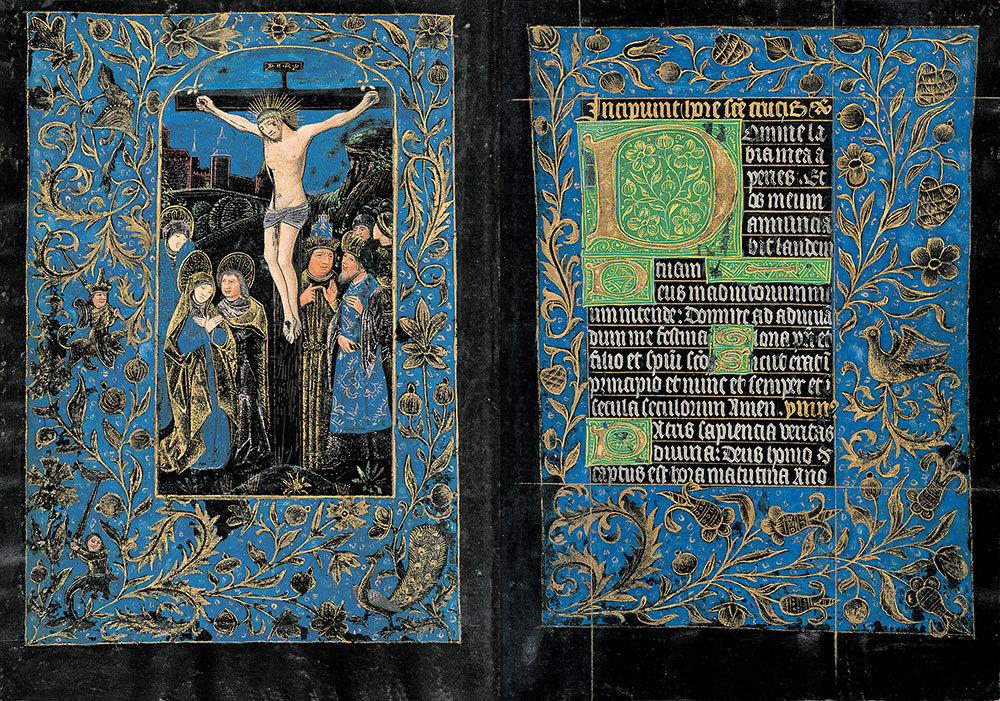 INRI
Incipiunt hore sce crucis
Domine la
bia mea a
peries. Et
os meum
annuncia
bit laudem
tuam
Deus in adiutorium me
um intende: Domine ad adiuua
dum me festina Gloria pri et
filio et spui sco Sicut erat i
principio et nunc et semper et i
secula seculorum Amen. ymn
Patris sapiencia veritas
diuina: Deus homo
captus est hora matutina A no